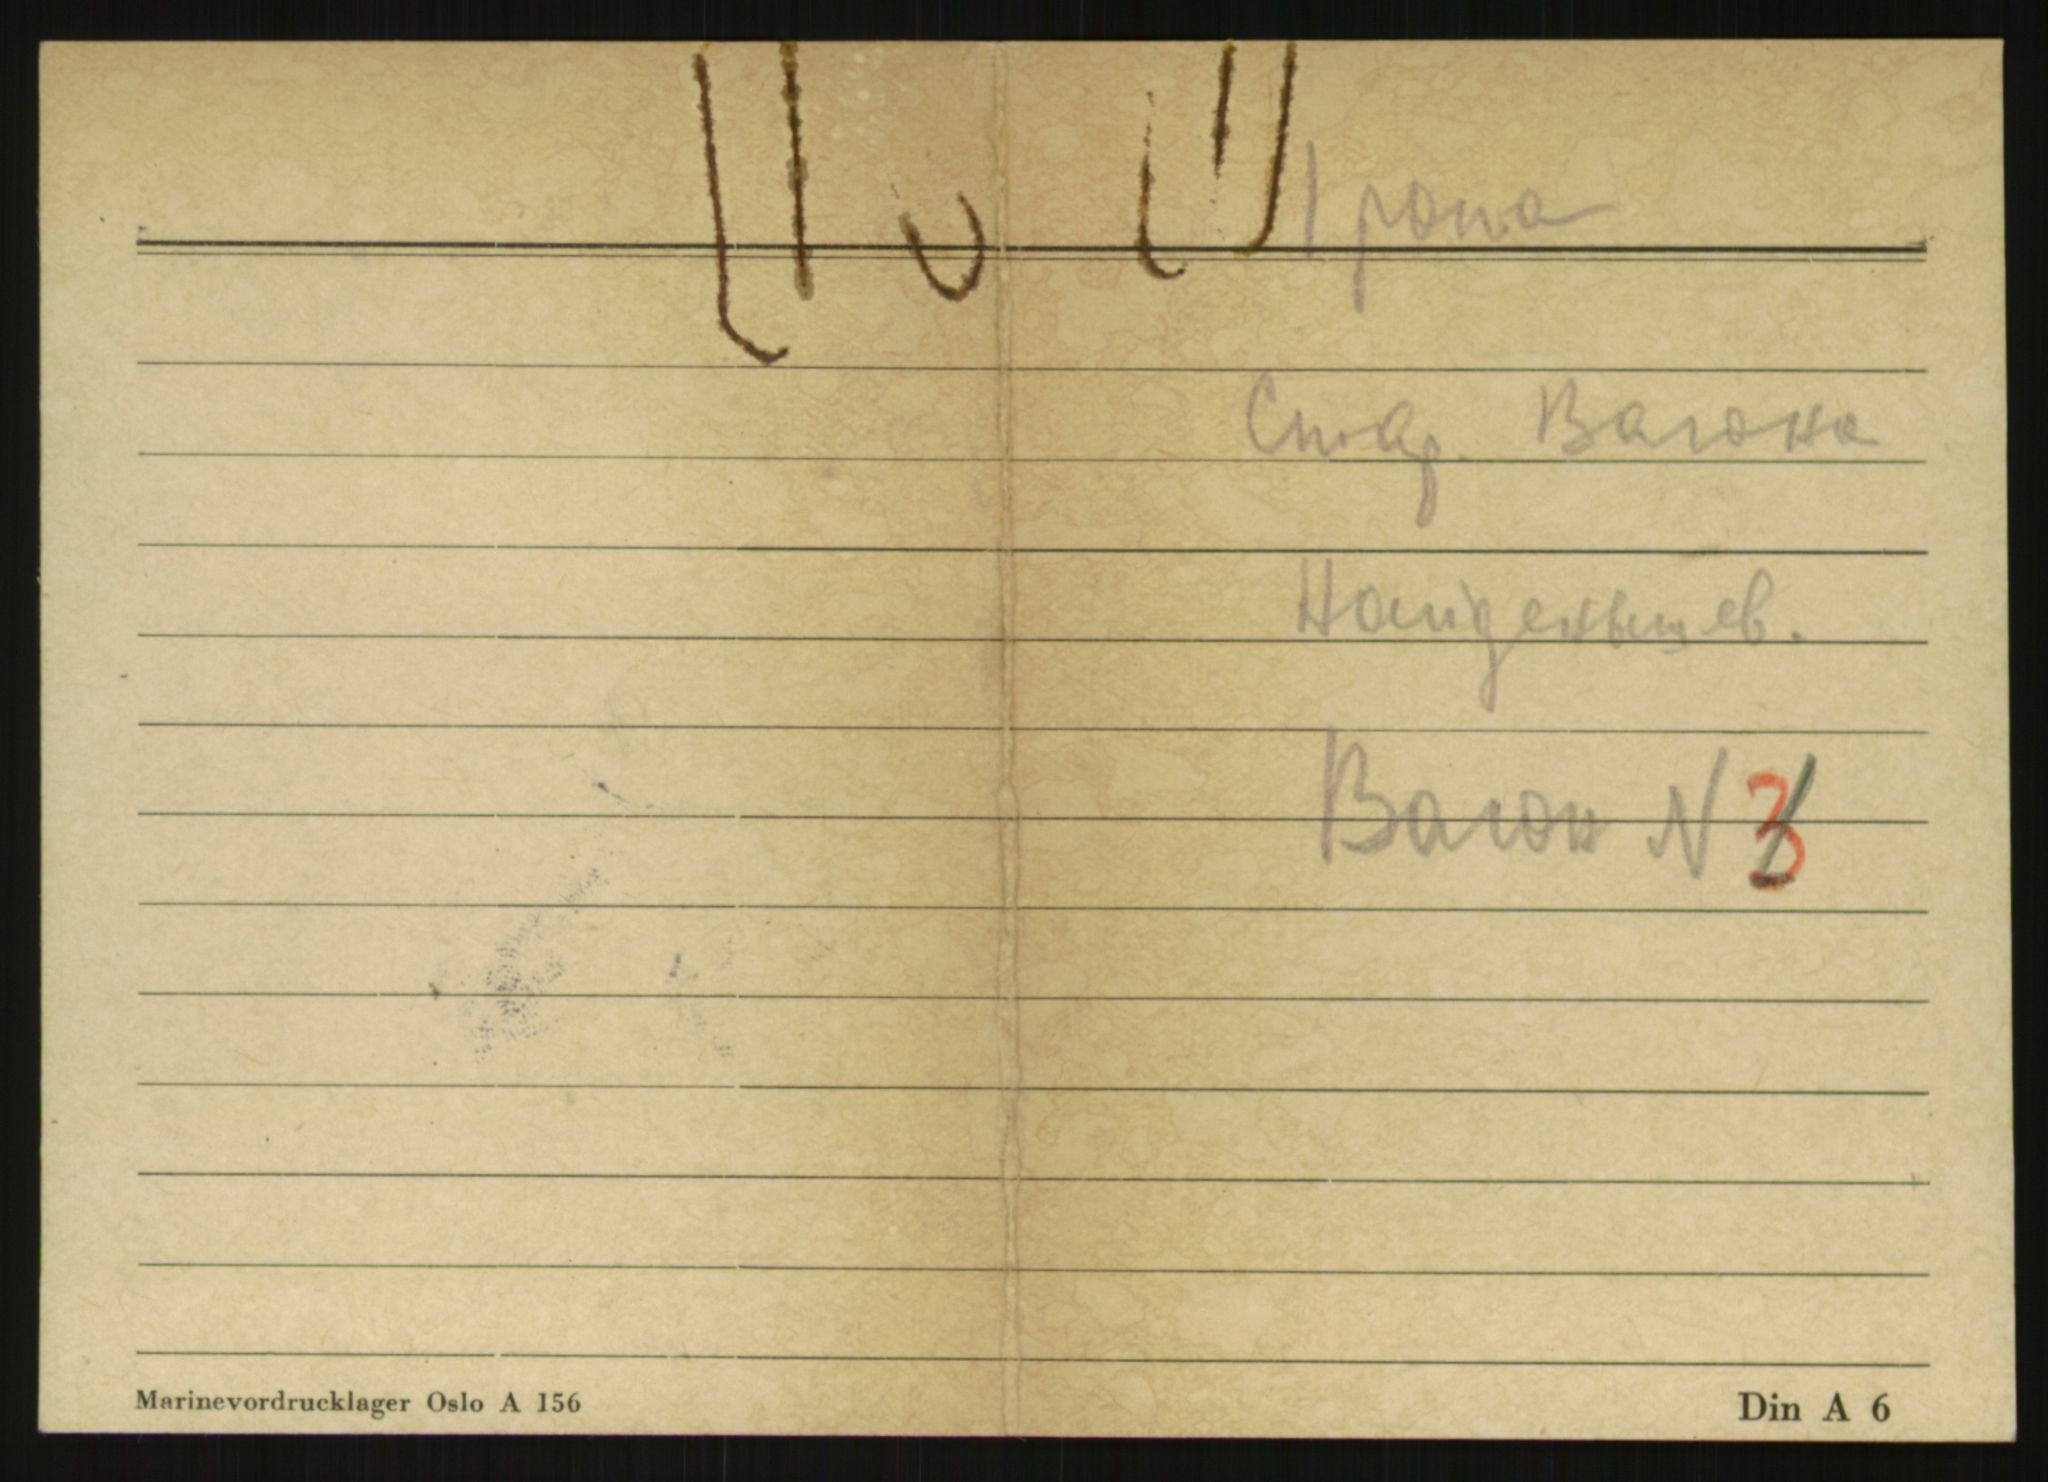 1 рота
Стар. Вагона
Найденышев.
Вагон N 3
Marinevordrucklager Oslo A 156
Din A 6